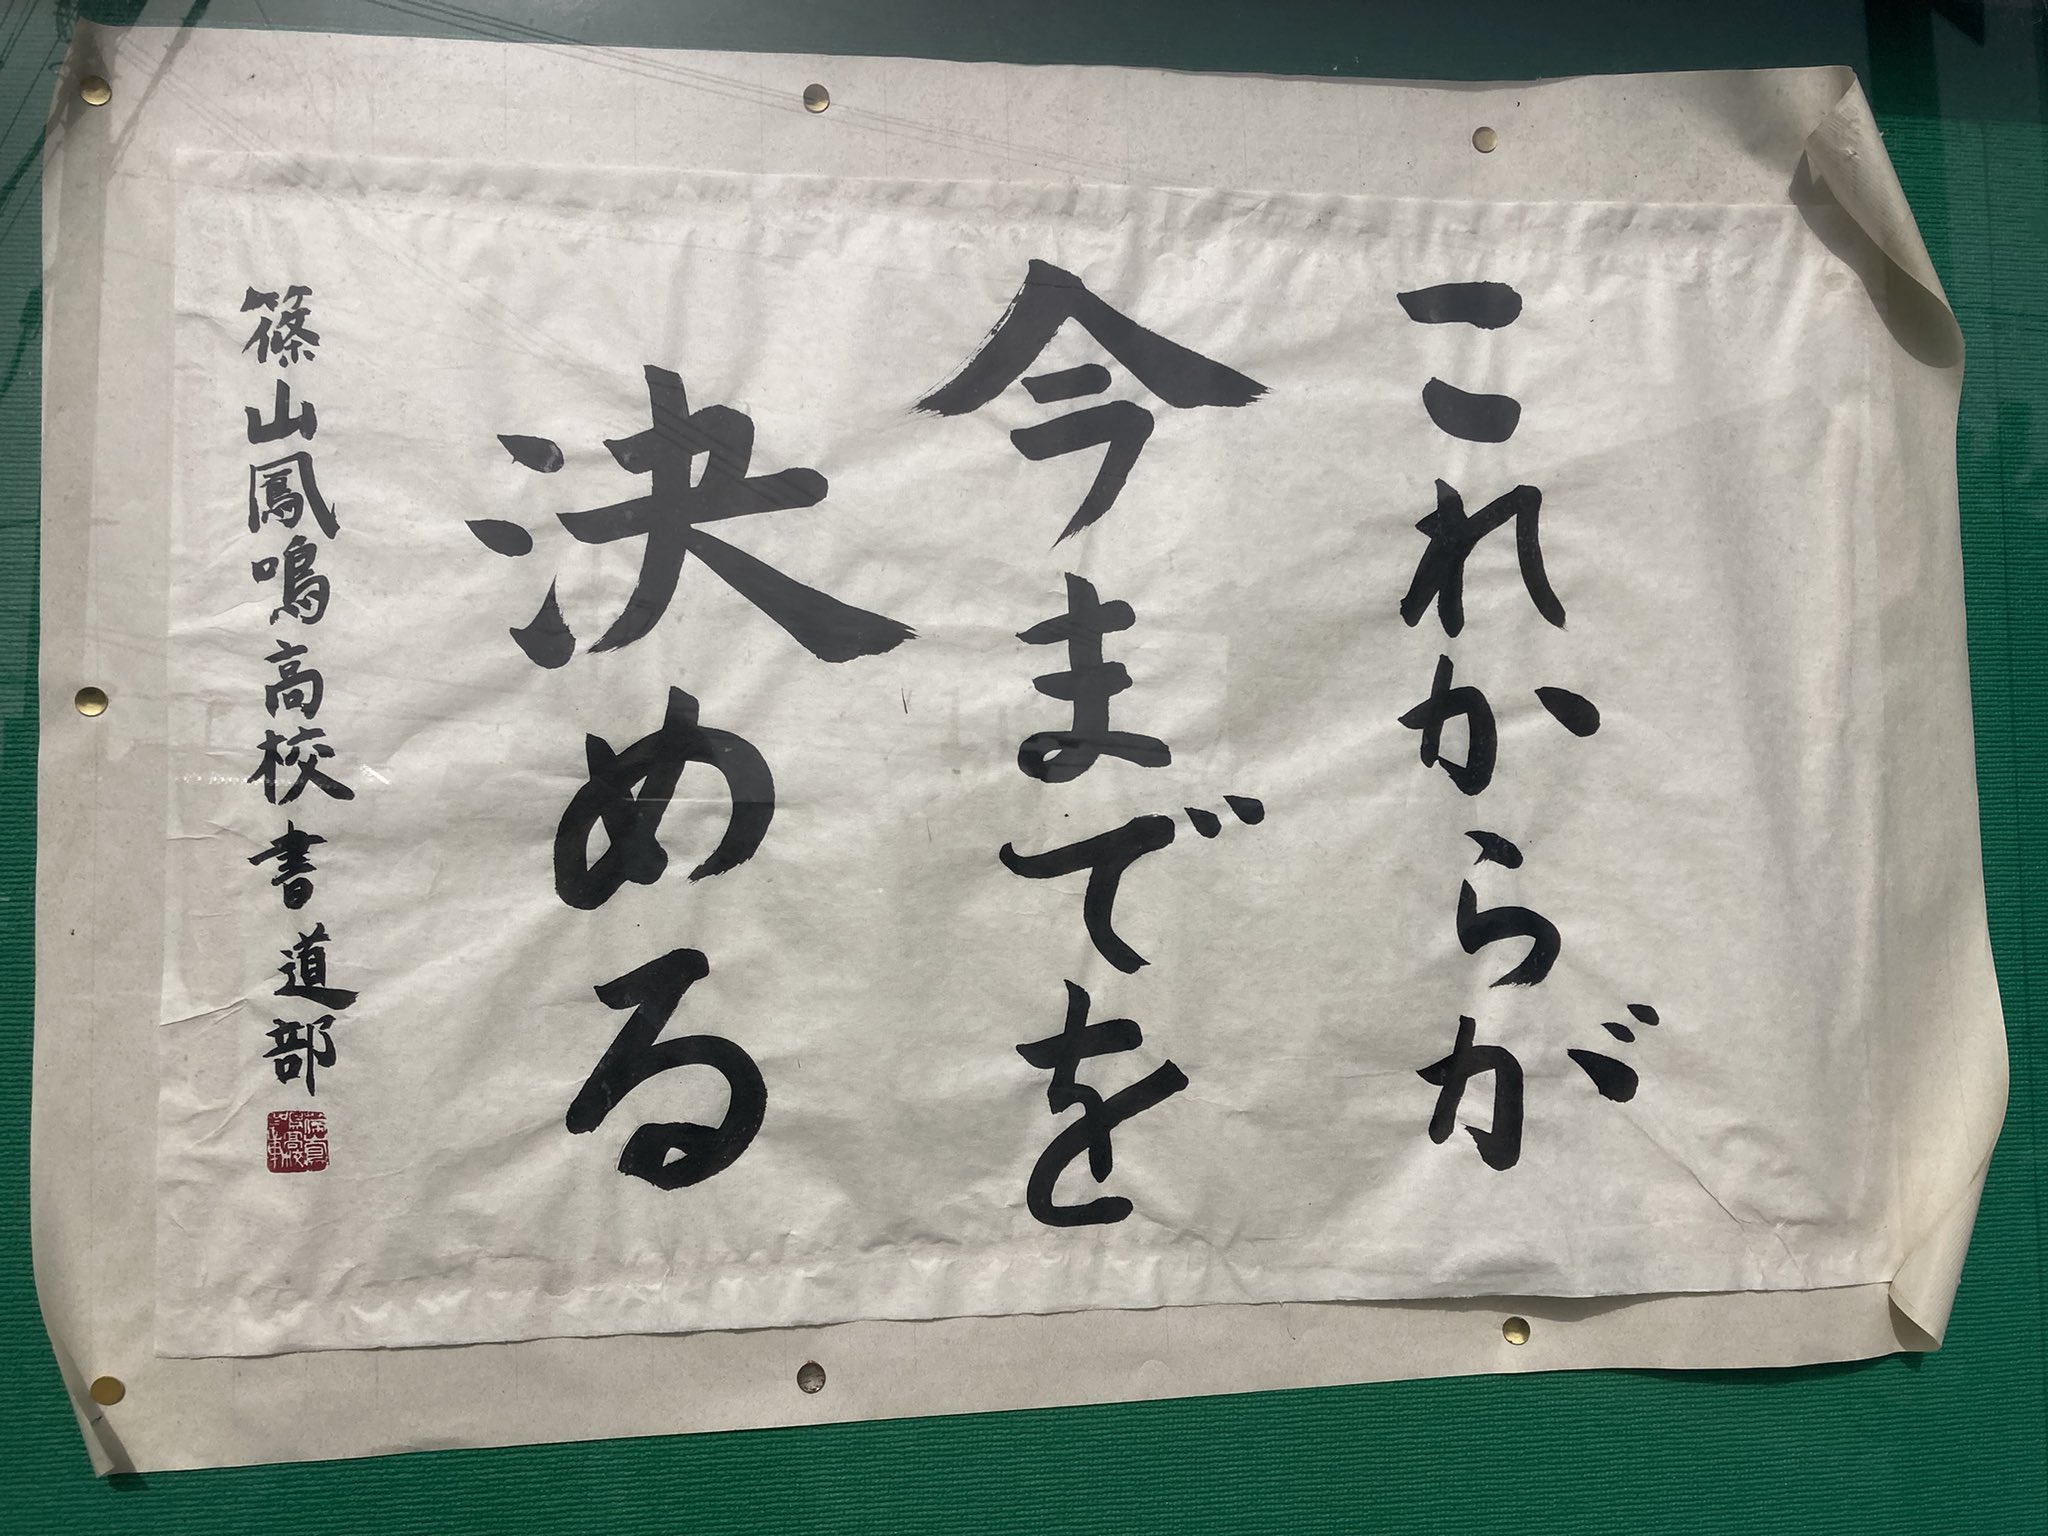 これからが
今までを
決める
篠山鳳鳴高校書道部